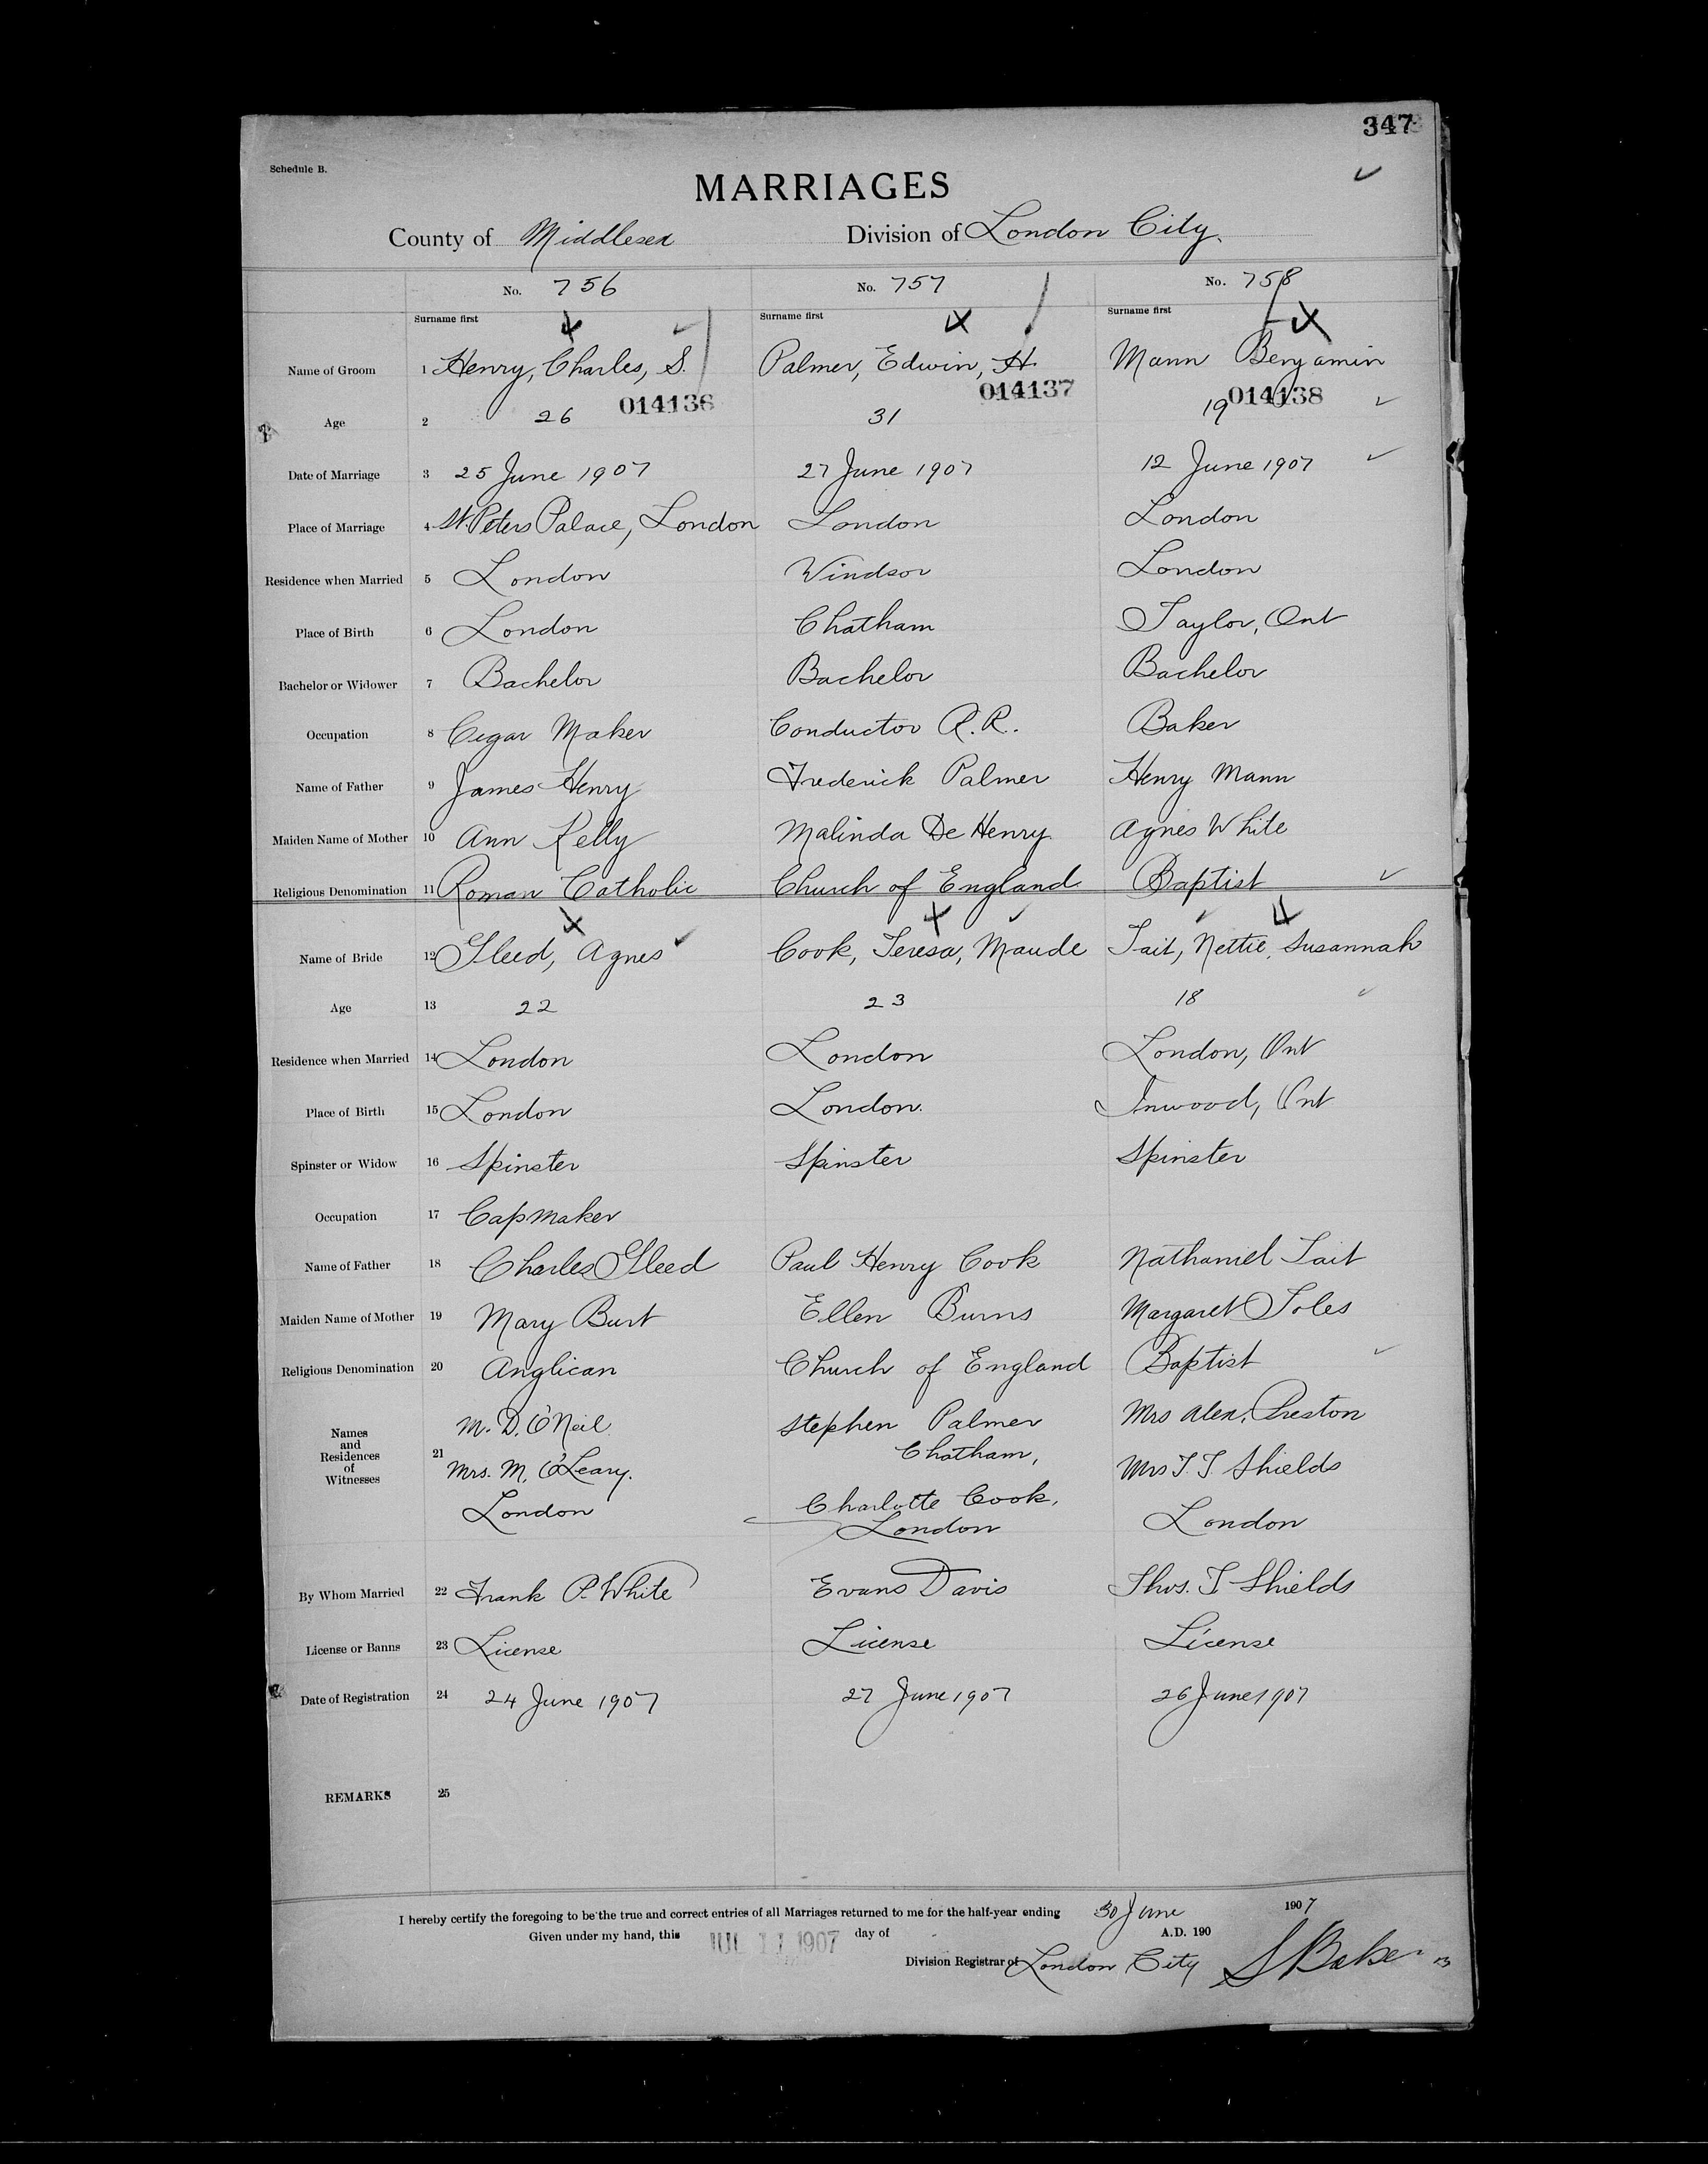 347
Schedule B.
MARRIAGES
County of Middlesex Division of London City.
No. 756 No. 757 No. 758
Surname first Surname first Surname first
Name of Groom 1 Henry, Charles, S. Palmer, Edwin, H. Mann Benjamin
014136 014137 014138
Age 2 26 31 19
Date of Marriage 3 25 June 1907 27 June 1907 12 June 1907
Place of Marriage 4 St Peters Palace, London London London
Residence when Married 5 London Windsor London
Place of Birth 6 London Chatham Taylor, Ont
Bachelor or Widower 7 Bachelor Bachelor Bachelor
Occupation 8 Cigar Maker Conductor R.R. Baker
Name of Father 9 James Henry Frederick Palmer Henry Mann
Maiden Name of Mother 10 Ann Kelly Malinda De Henry Agnes White
Religious Denomination 11 Roman Catholic Church of England Baptist
Name of Bride 12 Gleed, Agnes Cook, Teresa, Maude Tait, Nettie, Susannah
Age 13 22 23 18
Residence when Married 14 London London London, Ont
Place of Birth 15 London London. Inwood, Ont
Spinster or Widow 16 Spinster Spinster Spinster
Occupation 17 Capmaker
Name of Father 18 Charles Gleed Paul Henry Cook Nathaniel Tait
Maiden Name of Mother 19 Mary Burt Ellen Burns Margaret Soles
Religious Denomination 20 Anglican Church of England Baptist
Names and Residences of Witnesses 21 M. D. O'Neil Stephen Palmer Mrs Alex. Preston
Chatham,
Mrs. M. O'Leary. Mrs T. T. Shields
London Charlotte Cook, London
London
By Whom Married 22 Frank P. White Evans Davis Thos. T Shields
License or Banns 23 License License License
Date of Registration 24 24 June 1907 27 June 1907 26 June 1907
REMARKS 25
I hereby certify the foregoing to be the true and correct entries of all Marriages returned to me for the half-year ending 30 June 1907
Given under my hand, this JUL 11 1907 day of A.D. 190
Division Registrar of London City S Baker